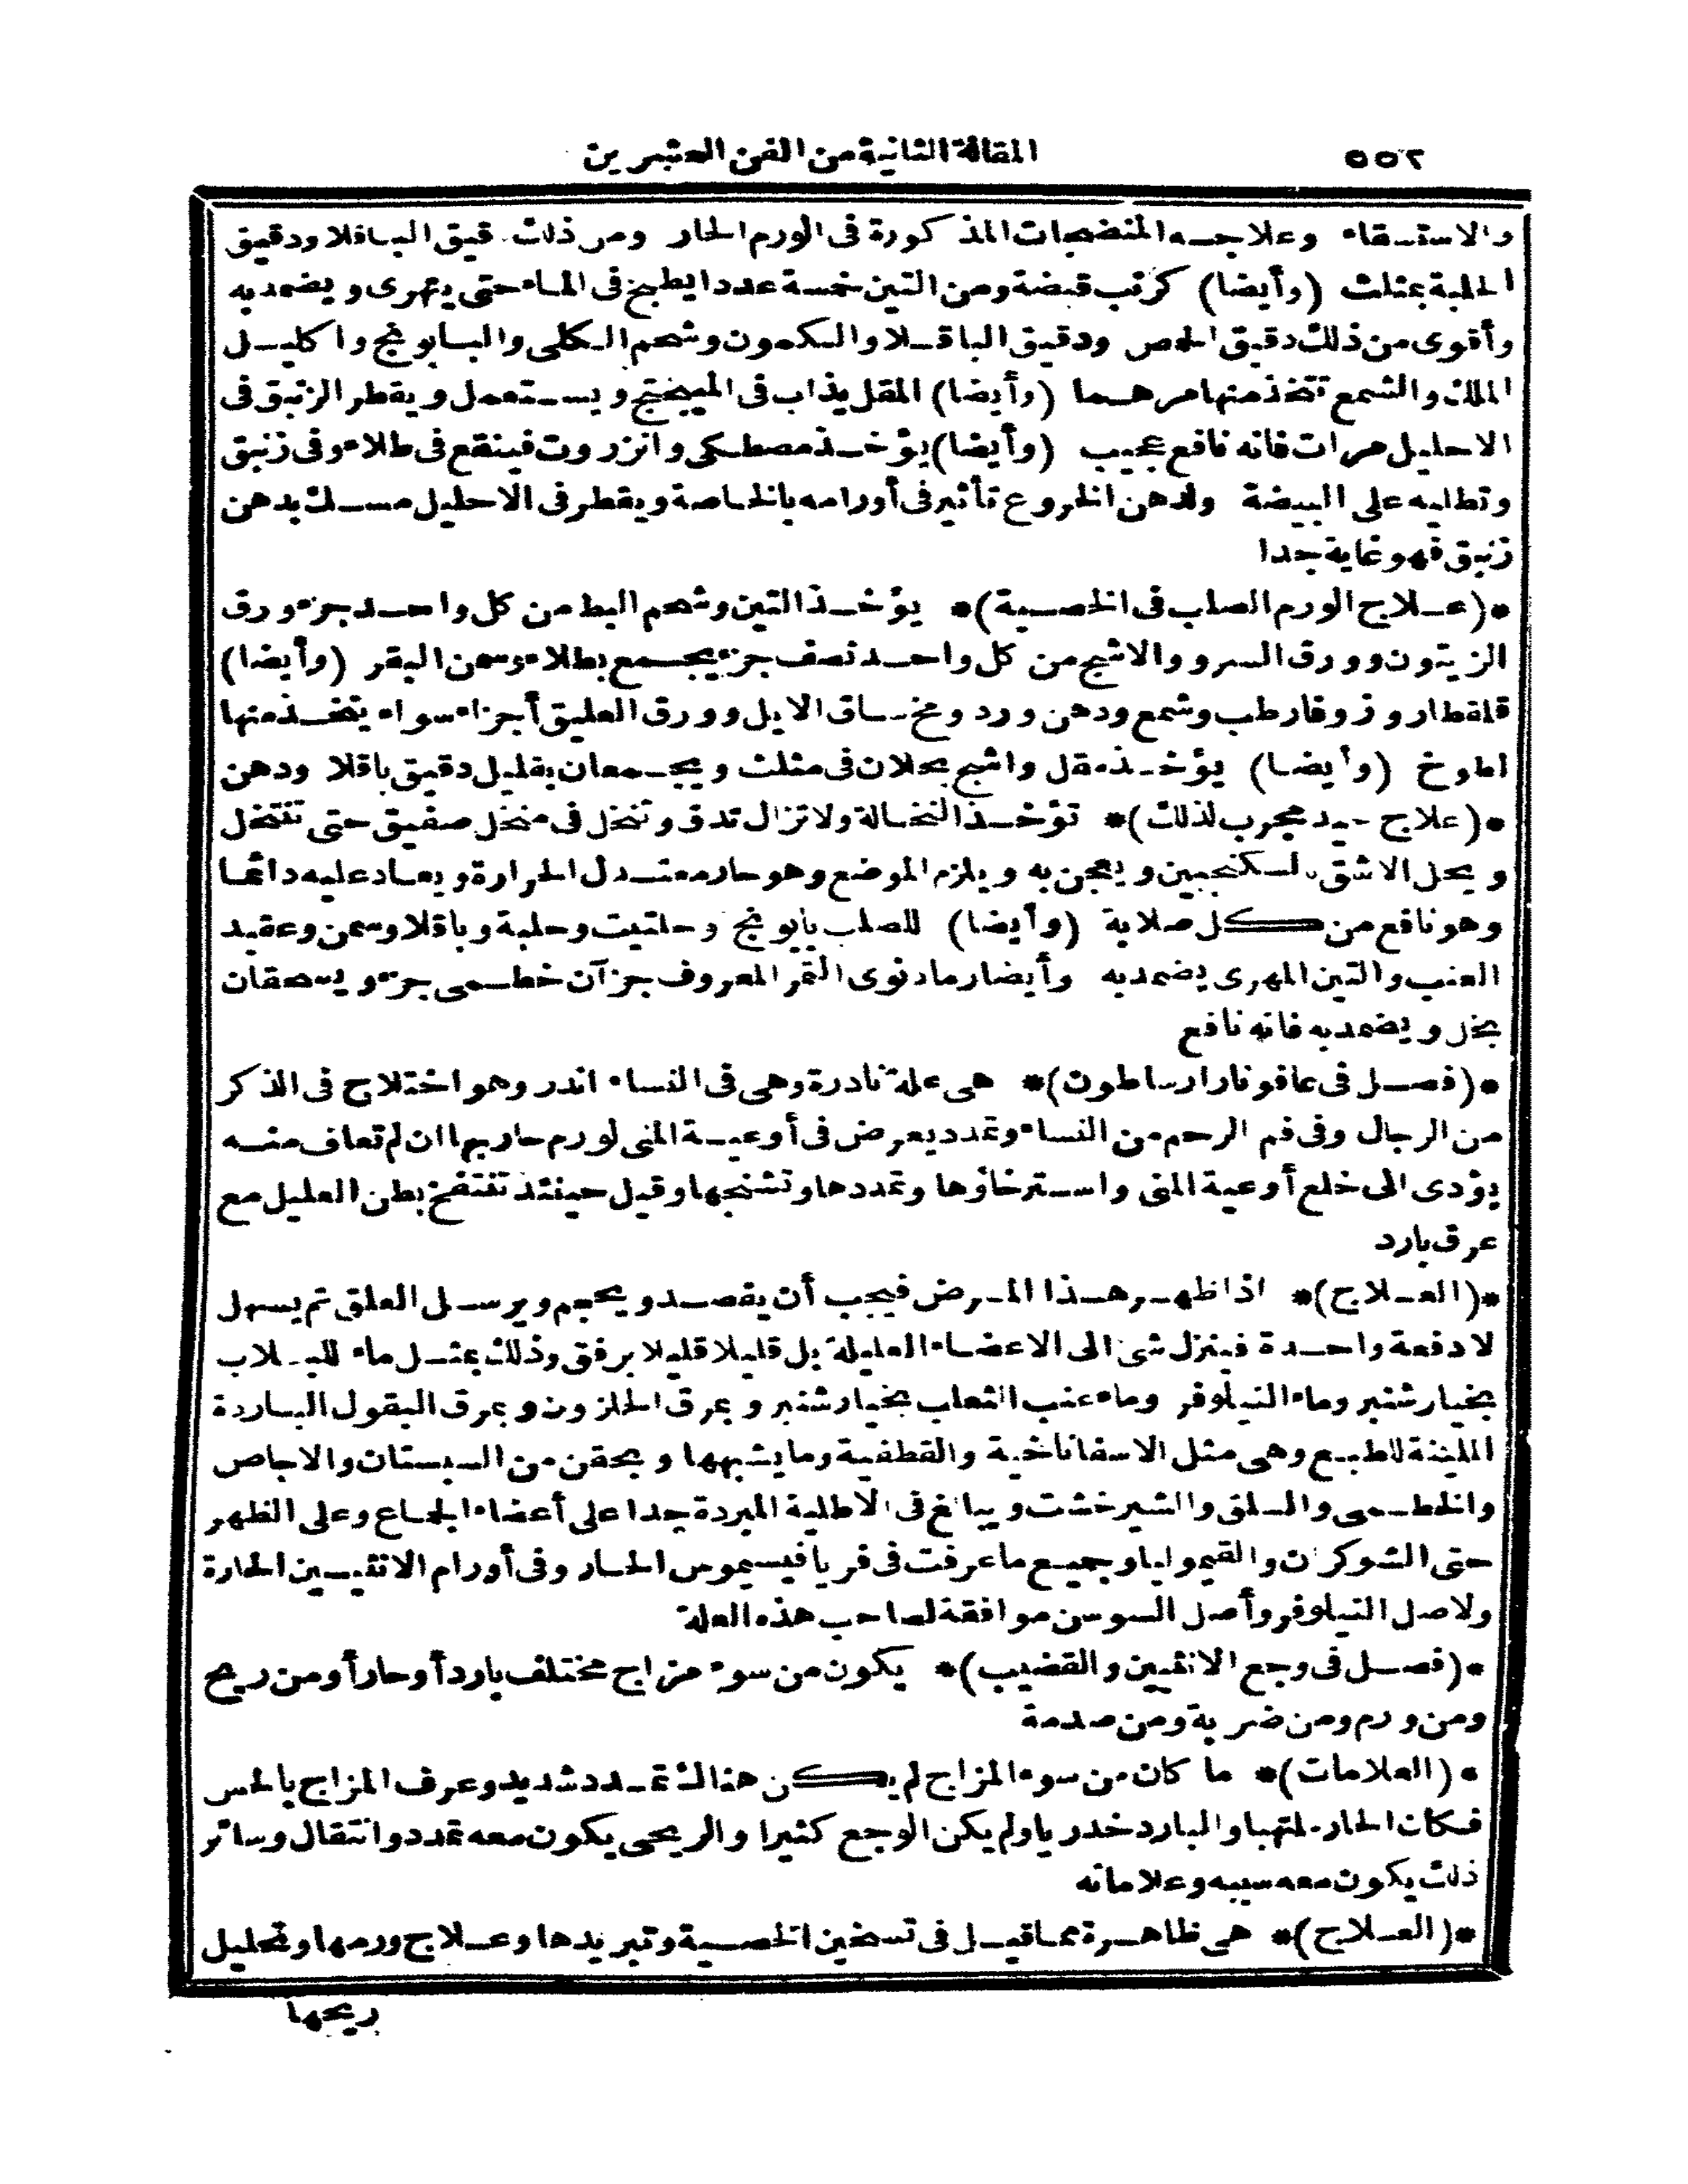 ٥٥٢ المقالة الثانية من الفن العشرين
والاستسقاء وعلاجه المنضجات المذكورة فى الورم الحار ومن ذلك دقيق الباقلا ودقيق
الحلبة بمثلث (وأيضا) كرنب قبضة ومن التين خمسة عددا يطبخ فى الماء حتى يتهرى ويضمد به
وأقوى من ذلك دقيق الحمص ودقيق الباقلا والكمون وشحم الكلى والبابونج واكليل
الملك والشمع تتخذ منها مرهما (وأيضا) المقل يذاب فى الميبختج ويستعمل ويقطر الزئبق فى
الاحليل مرات فانه نافع عجيب (وأيضا) يؤخذ مصطكى وانزروت فينقع فى طلاء وفى زنبق
وتطليه على البيضة ولدهن الخروع تأثير فى أورامه بالخاصة ويقطر فى الاحليل مسك بدهن
زنبق فهو غاية جدا
*(علاج الورم الصلب فى الخصية)* يؤخذ التين وشحم البط من كل واحد جزء ورق
الزيتون وورق السرو والاشج من كل واحد نصف جزء يجمع بطلاء وسمن البقر (وأيضا)
قلقطار وزوفا رطب وشمع ودهن ورد ومخ ساق الايل وورق العليق أجزاء سواء يتخذ منها
لطوخ (وأيضا) يؤخذ مقل واشج يحلان فى مثلث ويجمعان بقليل دقيق باقلا ودهن
*(علاج جيد مجرب لذلك)* تؤخذ النخالة ولا تزال تدق وتنخل فى منخل صفيق حتى تنتخل
ويحل الاشق بسكنجبين ويعجن به ويلزم الموضع وهو حار معتدل الحرارة ويعاد عليه دائما
وهو نافع من كل صلابة (وأيضا) للصلب بابونج وحلتيت وحلبة وباقلا وسمن وعقيد
العنب والتين المهرى يضمد به وأيضا رماد نوى التمر المعروف جزآن خطمى جزء ويسحقان
بخل ويضمد به فانه نافع
*(فصل فى عاقونارارساطون)* هى علة نادرة وهى فى النساء اندر وهو اختلاج فى الذكر
من الرجال وفى فم الرحم من النساء وتمدد يعرض فى أوعية المنى لورم حار بها ان لم تعاف منه
يؤدى الى خلع أوعية المنى واسترخاؤها وتمددها وتشنجها وقيل حينئذ تنتفخ بطن العليل مع
عرق بارد
*(العلاج)* اذا ظهر هذا المرض فيجب أن يفصد ويحجم ويرسل العلق ثم يسهل
لا دفعة واحدة فينزل شئ الى الاعضاء العليلة بل قليلا قليلا برفق وذلك بمثل ماء اللبلاب
بخيار شنبر وماء النيلوفر وماء عنب الثعلب بخيار شنبر وبمرق الحلزون وبمرق البقول الباردة
الملينة للطبيع وهى مثل الاسفاناخية والقطفية وما يشبهها ويحقن من السبستان والاجاص
والخطمى والسلق والشيرخشت ويبالغ فى الاطلية المبردة جدا على أعضاء الجماع وعلى الظهر
حتى الشوكران والقيموليا وجميع ما عرفت فى فريافيسيموس الحار وفى أورام الانثيين الحارة
ولاصل النيلوفر وأصل السوسن موافقة لصاحب هذه العلة
*(فصل فى وجع الانثيين والقضيب)* يكون من سوء مزاج مختلف بارد أو حار أو من ريح
ومن ورم ومن ضربة ومن صدمة
*(العلامات)* ما كان من سوء المزاج لم يكن هناك تمدد شديد وعرف المزاج بالحس
فكان الحار ملتهبا والبارد خدريا ولم يكن الوجع كثيرا والريحى يكون معه تمدد وانتقال وسائر
ذلك يكون معه سببه وعلاماته
*(العلاج)* هى ظاهرة مما قيل فى تسخين الخصية وتبريدها وعلاج ورمها وتحليل
ريحها